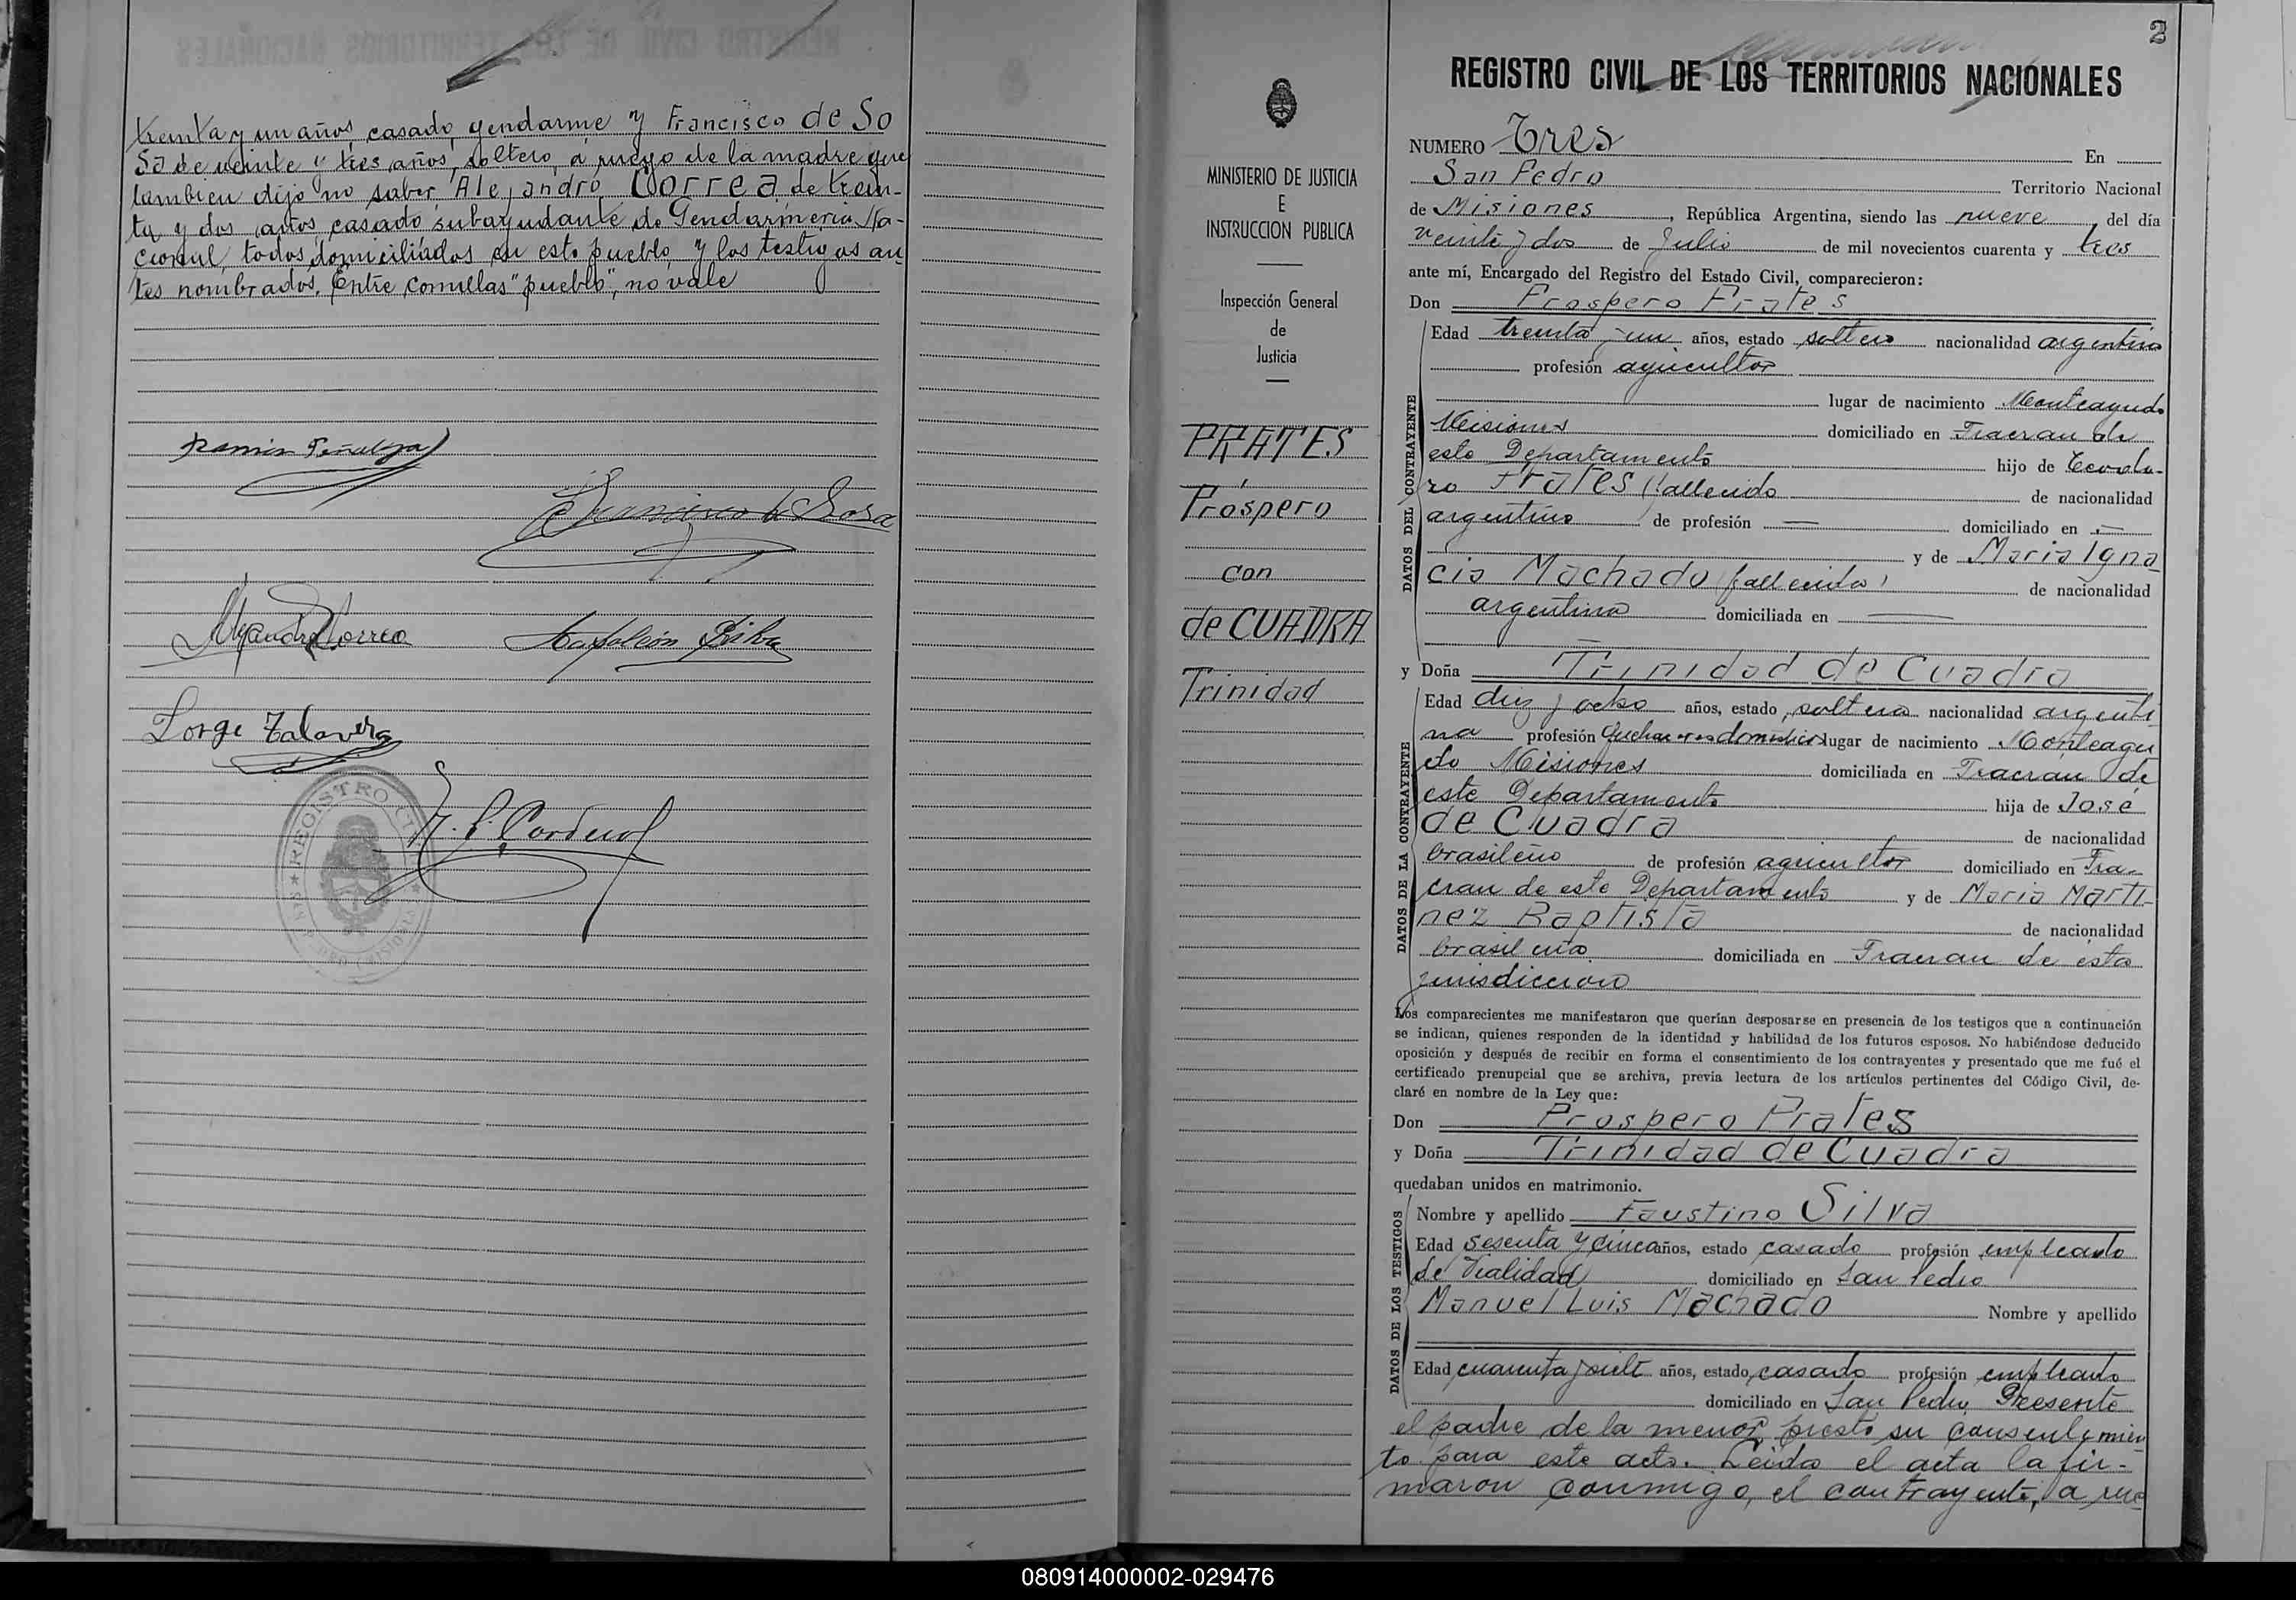 treinta y un años, casado, gendarme y Francisco de So
sa de veinte y tres años, soltero a ruego de la madre que
tambien dijo no saber, Alejandro Correa de trein-
ta y dos años, casado, subayudante de Gendarmeria Na-
cional, todos domiciliados en este pueblo y los testigos an
tes nombrados. Entre comillas "pueblo", no vale
Ramón Peñalva
Francisco de Sosa
Alejandro Correa
Napoleón Silva
Jorge Talavera
REGISTRO CIVIL
MINISTERIO DE JUSTICIA
E
INSTRUCCION PUBLICA
Inspección General
de
Justicia
PRATES
Próspero
con
de CUADRA
Trinidad
2
REGISTRO CIVIL DE LOS TERRITORIOS NACIONALES
NUMERO Tres En
San Pedro Territorio Nacional
de Misiones, República Argentina, siendo las nueve del día
veinte y dos de Julio de mil novecientos cuarenta y tres
ante mí, Encargado del Registro del Estado Civil, comparecieron:
Don Prospero Prates
DATOS DEL CONTRAYENTE
Edad treinta y un años, estado soltero nacionalidad argentino
profesión agricultor
lugar de nacimiento Monteagudo
Misiones domiciliado en Tracran de
este Departamento hijo de Teodo-
ro Prates fallecido de nacionalidad
argentino de profesión — domiciliado en —
y de Maria Igna
cia Machado fallecida, de nacionalidad
argentina domiciliada en —
y Doña Trinidad de Cuadra
DATOS DE LA CONTRAYENTE
Edad diez y ocho años, estado soltera nacionalidad argenti
na profesión Quehaceres domésticos lugar de nacimiento Monteagu
do Misiones domiciliada en Tracrán de
este Departamento hija de José
de Cuadra de nacionalidad
brasileño de profesión agricultor domiciliado en Tra-
cran de este Departamento y de Maria Marti-
nez Baptista de nacionalidad
brasileña domiciliada en Tracran de esta
jurisdiccion
Los comparecientes me manifestaron que querían desposarse en presencia de los testigos que a continuación
se indican, quienes responden de la identidad y habilidad de los futuros esposos. No habiéndose deducido
oposición y después de recibir en forma el consentimiento de los contrayentes y presentado que me fué el
certificado prenupcial que se archiva, previa lectura de los artículos pertinentes del Código Civil, de-
claré en nombre de la Ley que:
Don Prospero Prates
y Doña Trinidad de Cuadra
quedaban unidos en matrimonio.
DATOS DE LOS TESTIGOS
Nombre y apellido Faustino Silva
Edad sesenta y cinco años, estado casado profesión empleado
de Vialidad domiciliado en San Pedro
Manuel Luis Machado Nombre y apellido
Edad cuarenta y siete años, estado casado profesión empleado
domiciliado en San Pedro, Presente
el padre de la menor, presto su consentimien
to para este acto. Leida el acta la fir-
maron conmigo, el contrayente, a rue
080914000002-029476